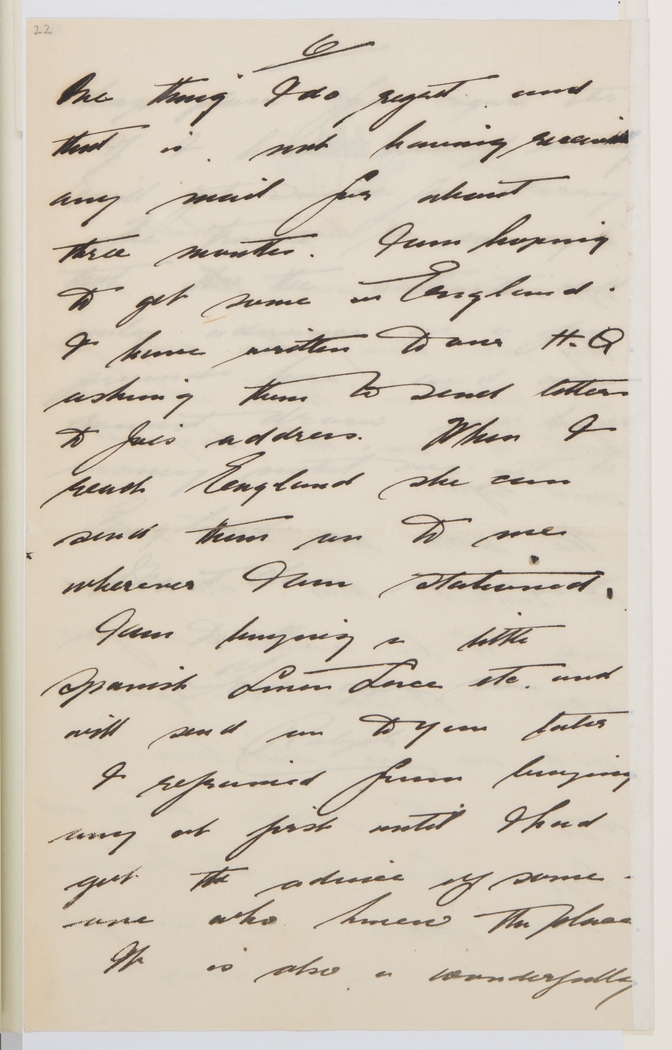 22
6
One thing I do regret and
that is not having received
any mail for about
three months. I am hoping
to get some in England.
I have written to our H.Q
asking them to send letters
to address. When I
reach England she can
send them on to me
wherever I am stationed.
I am buying a little
Spanish Linen Lace etc. and
will send on to you later
I refrained from buying
any at first until I had
got the advice of some-
one who knew the place
It is also a wonderfully